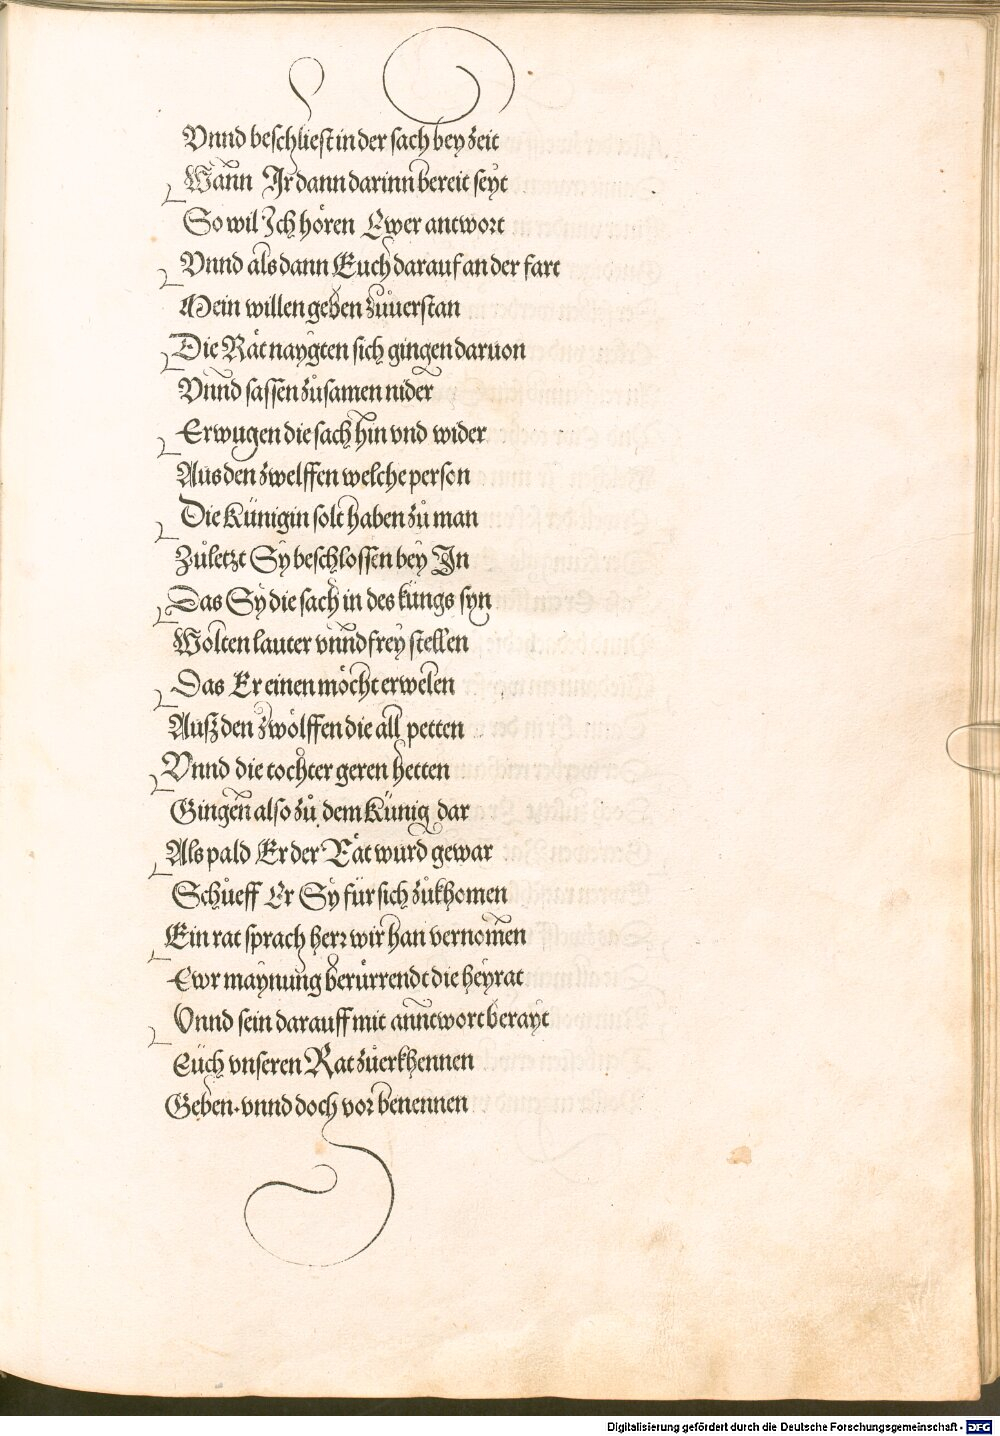 Vnnd beschliest in der sach bey zeit
Wann Ir dann darinn bereit seyt
So wil Ich hören Ewer antwort
Vnnd als dann Euch darauf an der fart
Mein willen geben zůuerstan
Die Rät naygten sich gingen daruon
Vnnd sassen zůsamen nider
Erwugen die sach hin vnd wider
Aus den zwelffen welche person
Die Künigin solt haben zů man
Zůletzt Sy beschlossen bey In
Das Sy die sach in des küngs syn
Wolten lauter vnnd frey stellen
Das Er einen möcht erwelen
Auß den zwölffen die all petten
Vnnd die tochter geren hetten
Gingen also zů dem Künig dar
Als pald Er der Rät wurd gewar
Schůeff Er Sy für sich zůkhomen
Ein rat sprach herr wir han vernomen
Ewr maynung berürrendt die heyrat
Vnnd sein darauff mit anntwort berayt
Eüch vnseren Rat zůerkhennen
Geben. vnnd doch vor benennen
Digitalisierung gefördert durch die Deutsche Forschungsgemeinschaft - DFG